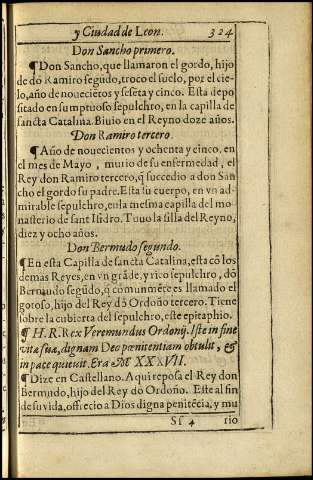 y Ciudad de Leon. 324
Don Sancho primero.
¶Don Sancho, que llamaron el gordo, hijo
de dõ Ramiro segũdo, troco el suelo, por el cie-
lo, año de nouecietos y seseta y cinco. Esta depo
sitado en sumptuoso sepulchro, en la capilla de
sancta Catalina. Biuio en el Reyno doze años.
Don Ramiro tercero.
¶Año de nouecientos y ochenta y cinco, en
el mes de Mayo, murio de su enfermedad, el
Rey don Ramiro tercero, q̃ succedio a don San
cho el gordo su padre. Esta su cuerpo, en vn ad-
mirable sepulchro, en la mesma capilla del mo-
nasterio de sant Isidro. Tuuo la silla del Reyno,
diez y ocho años.
Don Bermudo segundo.
¶En esta Capilla de sancta Catalina, esta cõ los
demas Reyes, en vn grãde, y rico sepulchro, dõ
Bermudo segũdo, q̃ comunmẽte es llamado el
gotoso, hijo del Rey dõ Ordoño tercero. Tiene
sobre la cubierta del sepulchro, este epitaphio.
¶ H. R. Rex Veremundus Ordonij. Iste in fine
vitæ suæ, dignam Deo pœnitentiam obtulit, &
in pace quieuit. Era M XXXVII.
¶ Dize en Castellano. Aqui reposa el Rey don
Bermudo, hijo del Rey dõ Ordoño. Este al fin
de su vida, offrecio a Dios digna penitẽcia, y mu
Sf 4 rio